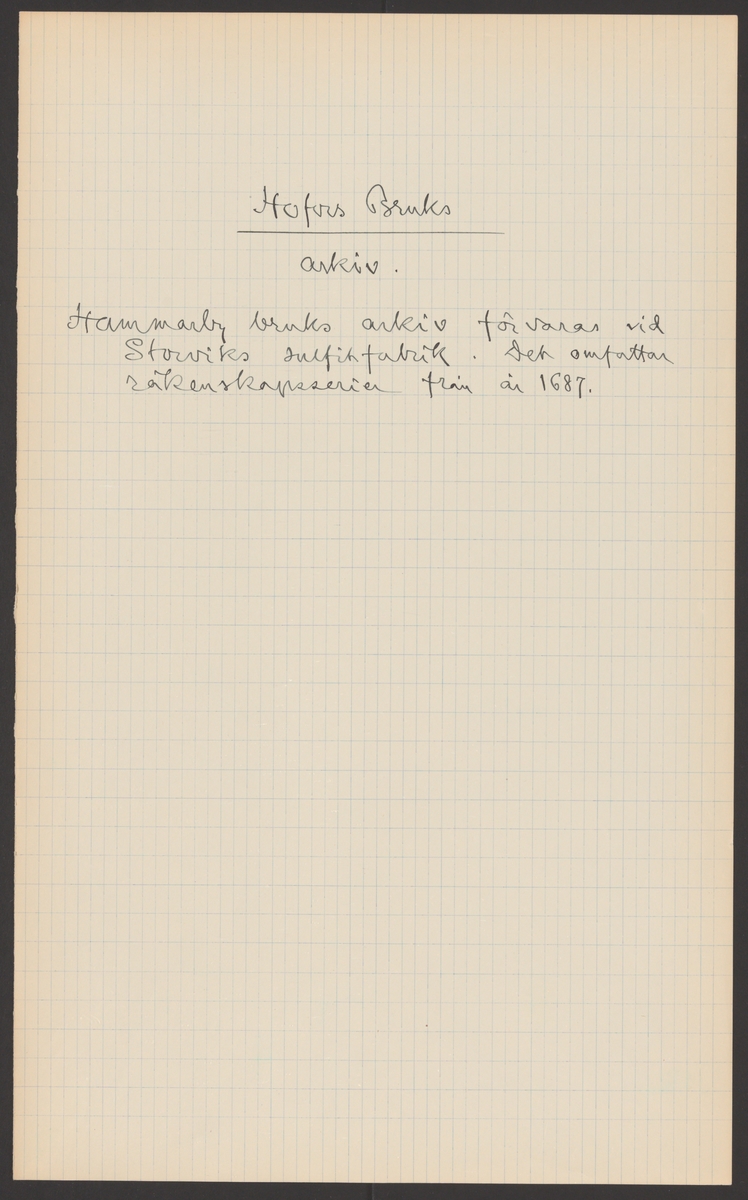 Hofors Bruks
arkiv.
Hammarby bruks arkiv förvaras vid
Storviks sulfitfabrik. Det omfattar
räkenskapsserier från år 1687.